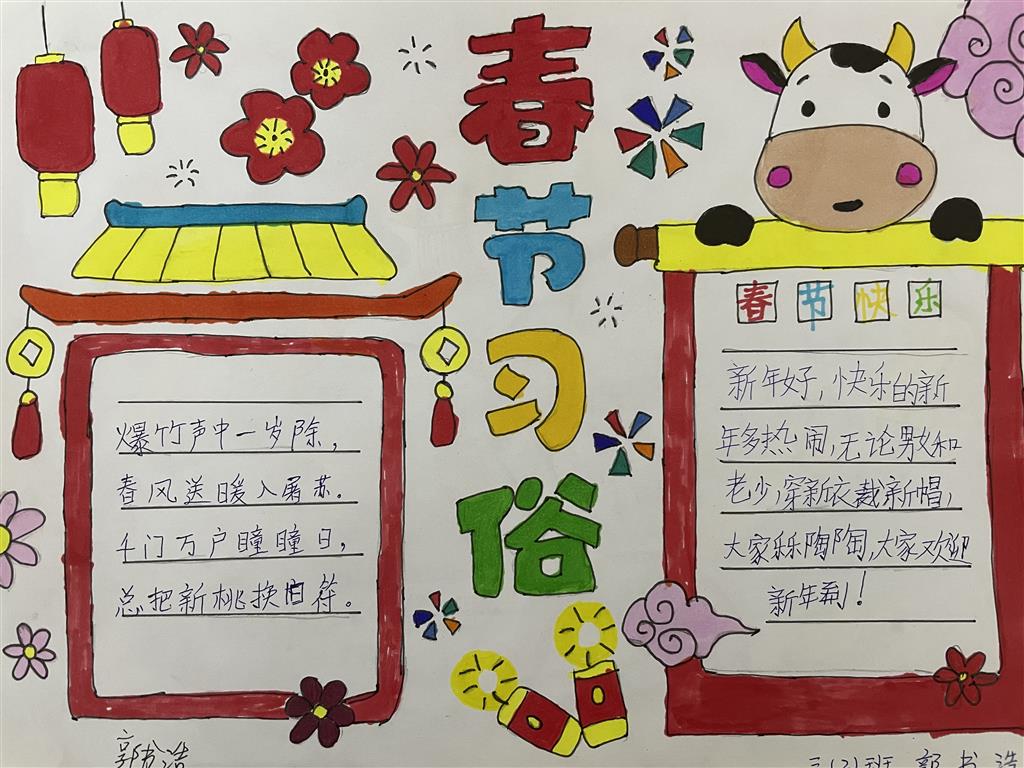 春节习俗
爆竹声中一岁除，
春风送暖入屠苏。
千门万户瞳瞳日，
总把新桃换旧符。
春节快乐
新年好，快乐的新
年多热闹，无论男女和
老少，穿新衣裁新帽，
大家乐乐陶陶，大家欢迎
新年到！
郭书浩
三(2)班 郭书浩